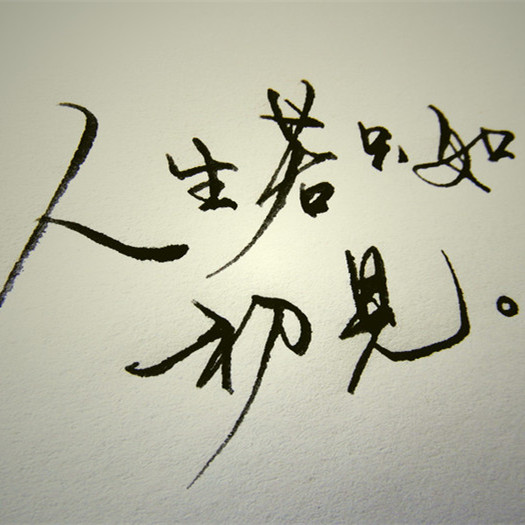 人生若只如
初見。